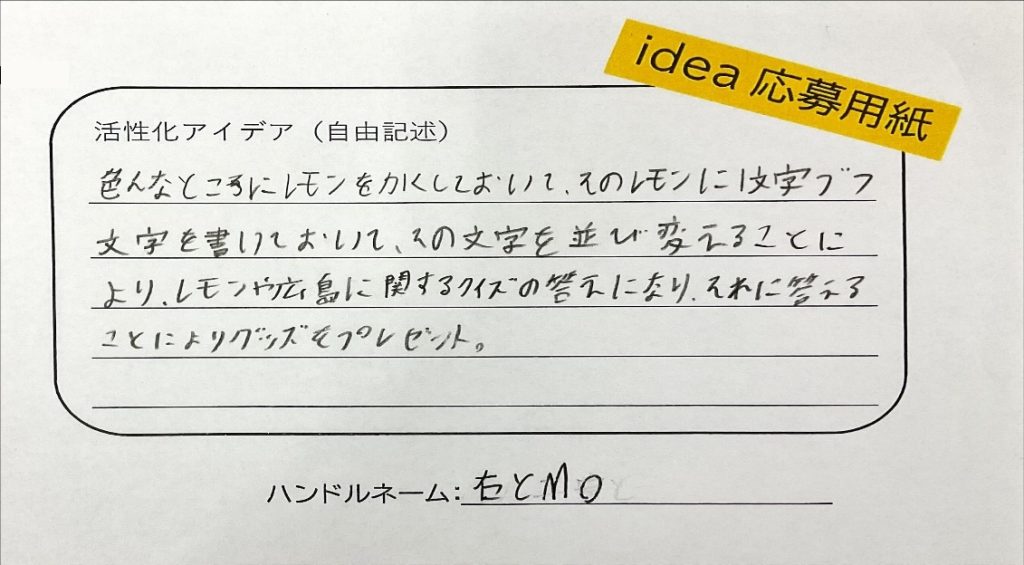 idea 応募用紙
活性化アイデア（自由記述）
色んなところにレモンをかくしておいて、そのレモンに1文字ヅツ
文字を書けておいて、その文字を並び変えることに
より、レモンや広島に関するクイズの答えになり、それに答える
ことによりグッズをプレゼント。
ハンドルネーム：右とMO